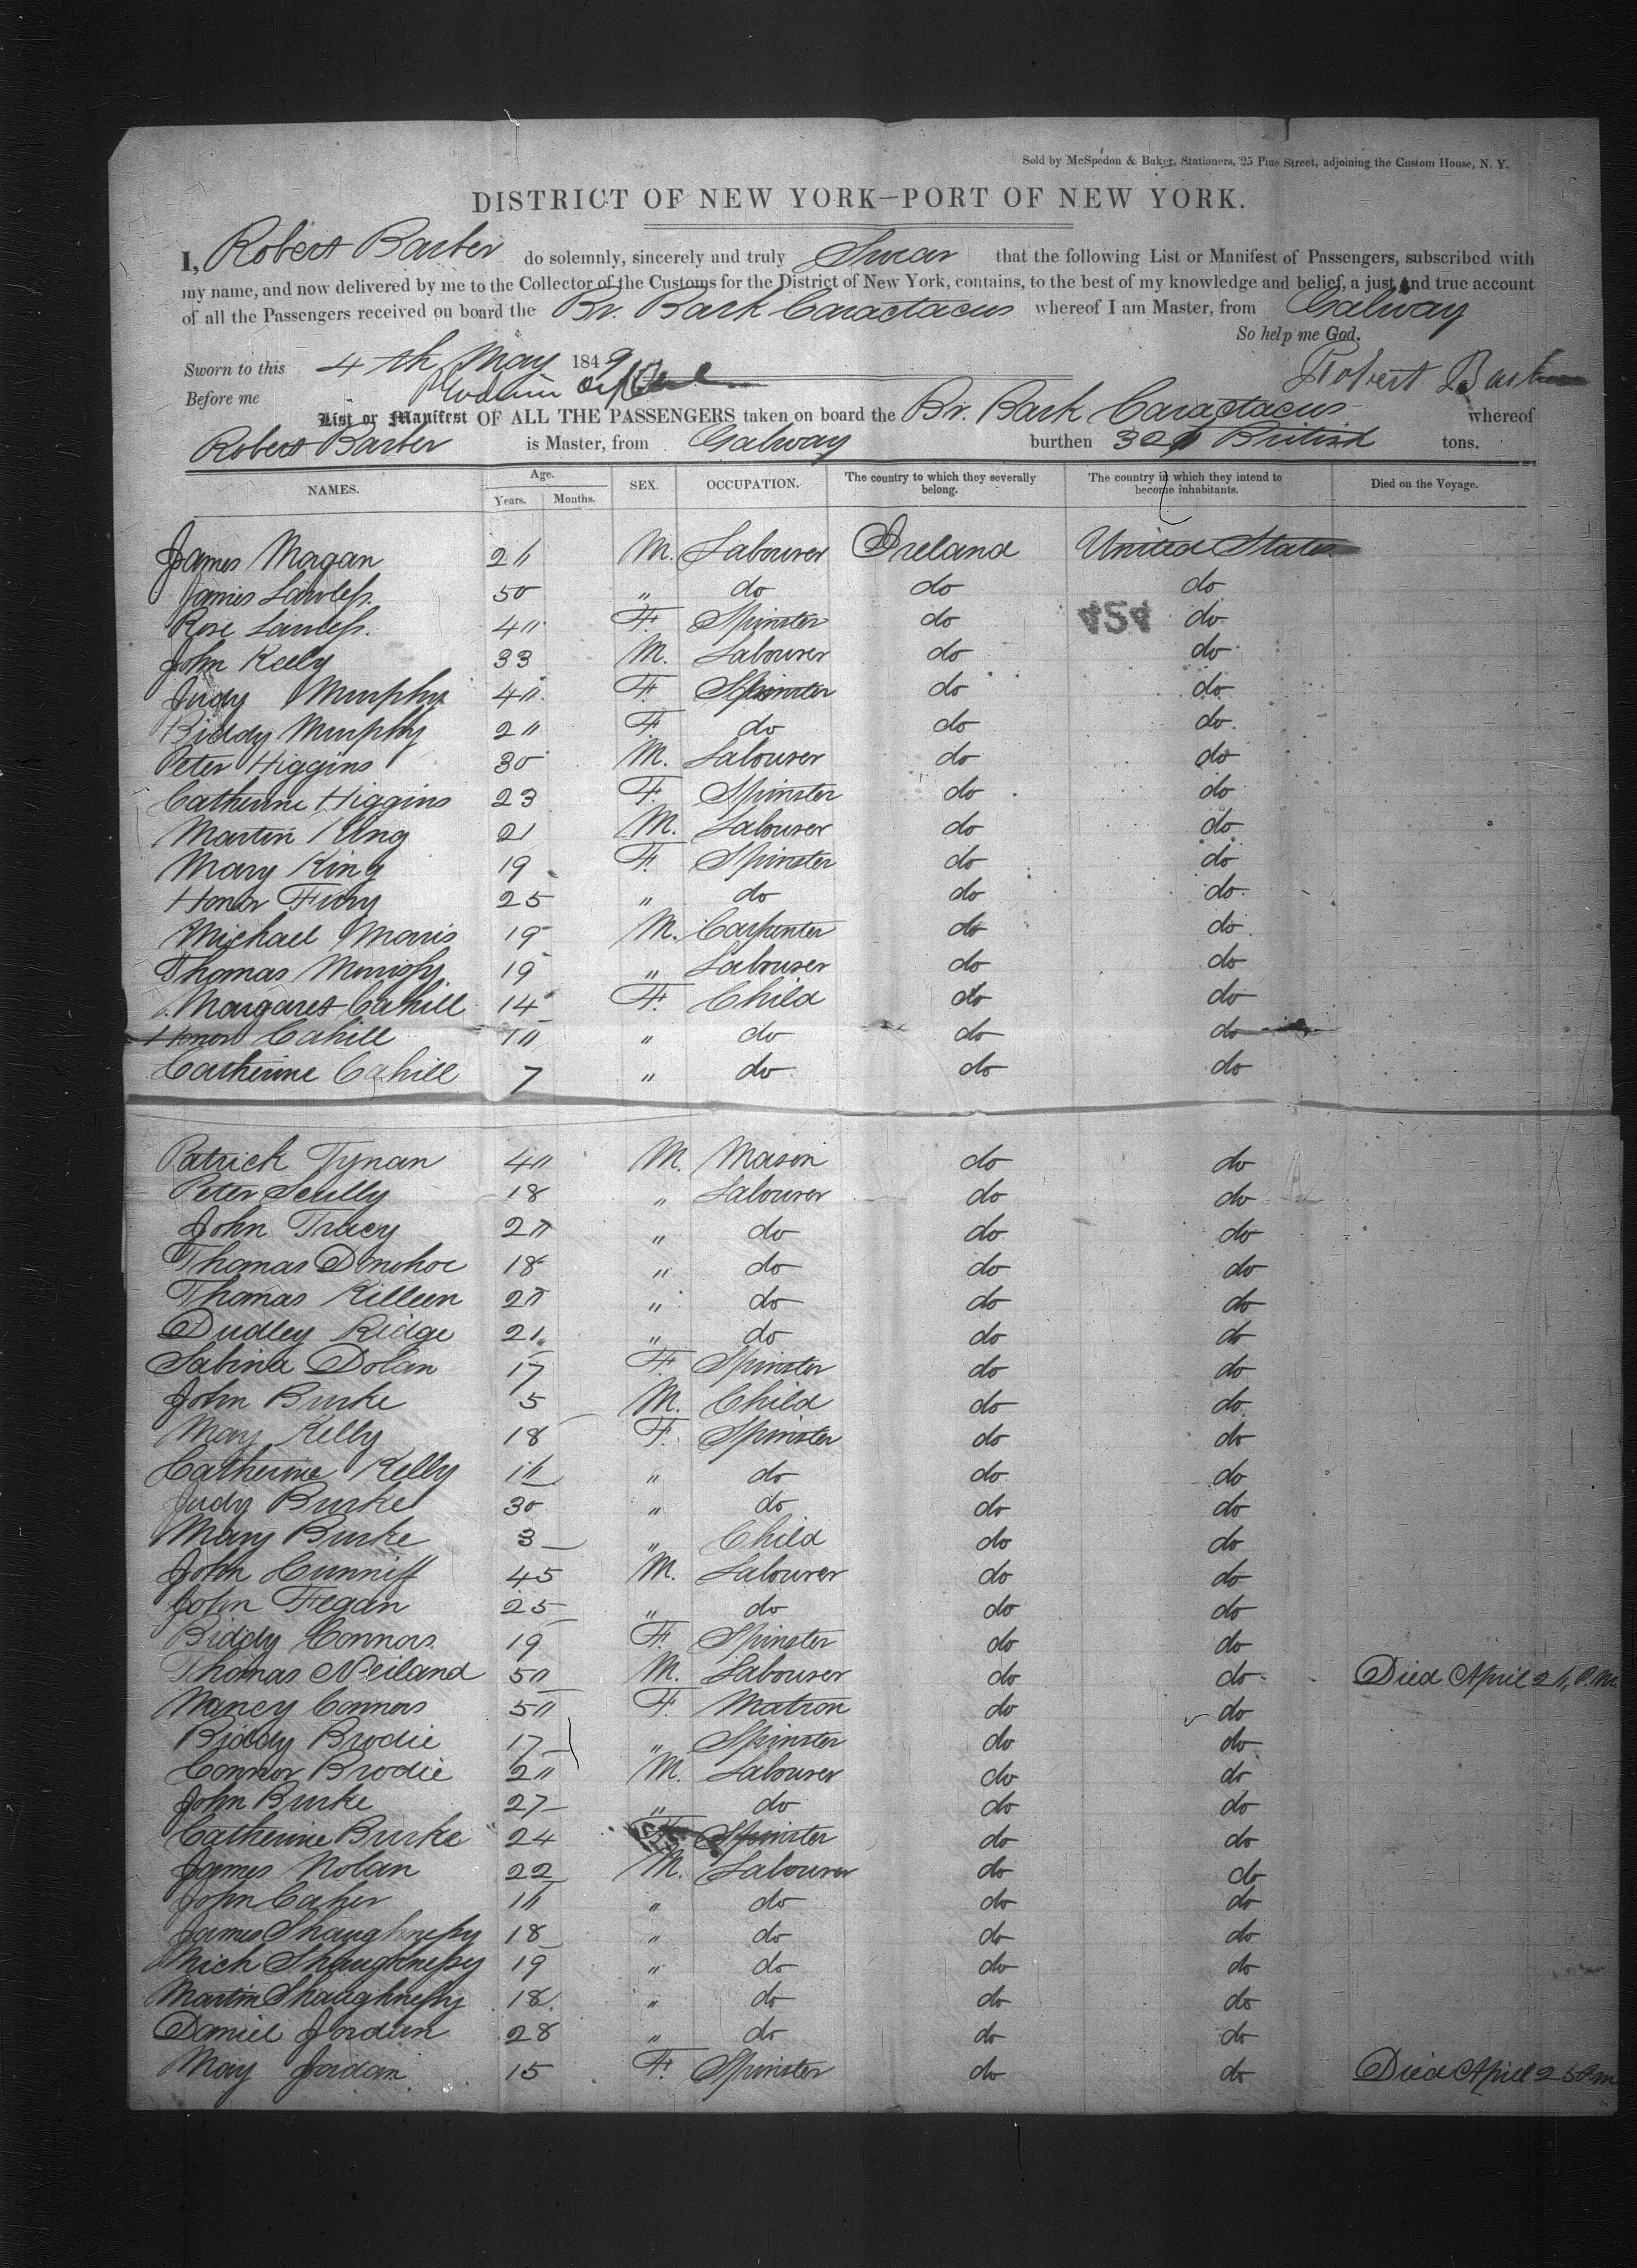 Sold by McSpedon & Baker, Stationers, 25 Pine Street, adjoining the Custom House, N. Y.
DISTRICT OF NEW YORK—PORT OF NEW YORK.
I, Robert Barber do solemnly, sincerely and truly Swear that the following List or Manifest of Passengers, subscribed with
my name, and now delivered by me to the Collector of the Customs for the District of New York, contains, to the best of my knowledge and belief, a just and true account
of all the Passengers received on board the Br. Bark Caractacus whereof I am Master, from Galway
So help me God.
Sworn to this 4th May 1849
Robert Barber
Before me
List or Manifest OF ALL THE PASSENGERS taken on board the Br. Bark Caractacus whereof
Robert Barber is Master, from Galway burthen British tons.
NAMES. Age. Years. Months. SEX. OCCUPATION. The country to which they severally belong. The country in which they intend to become inhabitants. Died on the Voyage.
James Morgan M. Labourer Ireland United States
James Lawless 50 " do do do
Rose Lawless 40 F. Spinster do 454 do
John Keely 33 M. Labourer do do
Judy Murphy 40 F. Spinster do do
Biddy Murphy 20 F. do do do
Peter Higgins 30 M. Labourer do do
Catherine Higgins 23 F. Spinster do do
Martin King 21 M. Labourer do do
Mary King 19 F. Spinster do do
Honor Fury 25 " do do do
Michael Morris 19 M. Carpenter do do
Thomas 19 " Labourer do do
Margaret Cahill 14 F. Child do do
Honor Cahill 10 " do do do
Catherine Cahill 7 " do do do
Patrick Tynan 40 M. Mason do do
Peter Scully 18 " Labourer do do
John Tracy 20 " do do do
Thomas Donohoe 18 " do do do
Thomas Killeen 20 " do do do
Dudley Ridge 21 " do do do
Sabina Dolan 17 F. Spinster do do
John Burke 5 M. Child do do
Mary Kelly 18 F. Spinster do do
Catherine Kelly " do do do
Judy Burke 30 " do do do
Mary Burke 3 " Child do do
John Cunniff 45 M. Labourer do do
John Fegan 25 " do do do
Biddy Connors 19 F. Spinster do do
Thomas Neiland 50 M. Labourer do do Died April P.M.
Nancy Connors 50 F. Matron do do
Biddy Brodie 17 " Spinster do do
Connor Brodie 20 M. Labourer do do
John Burke 27 " do do do
Catherine Burke 24 F Spinster do do
James Nolan 22 M. Labourer do do
John Caher " do do do
James Shaughnessy 18 " do do do
Mich Shaughnessy 19 " do do do
Martin Shaughnessy 18 " do do do
Daniel Jordan 28 " do do do
May Jordan 15 F. Spinster do do Died April 25